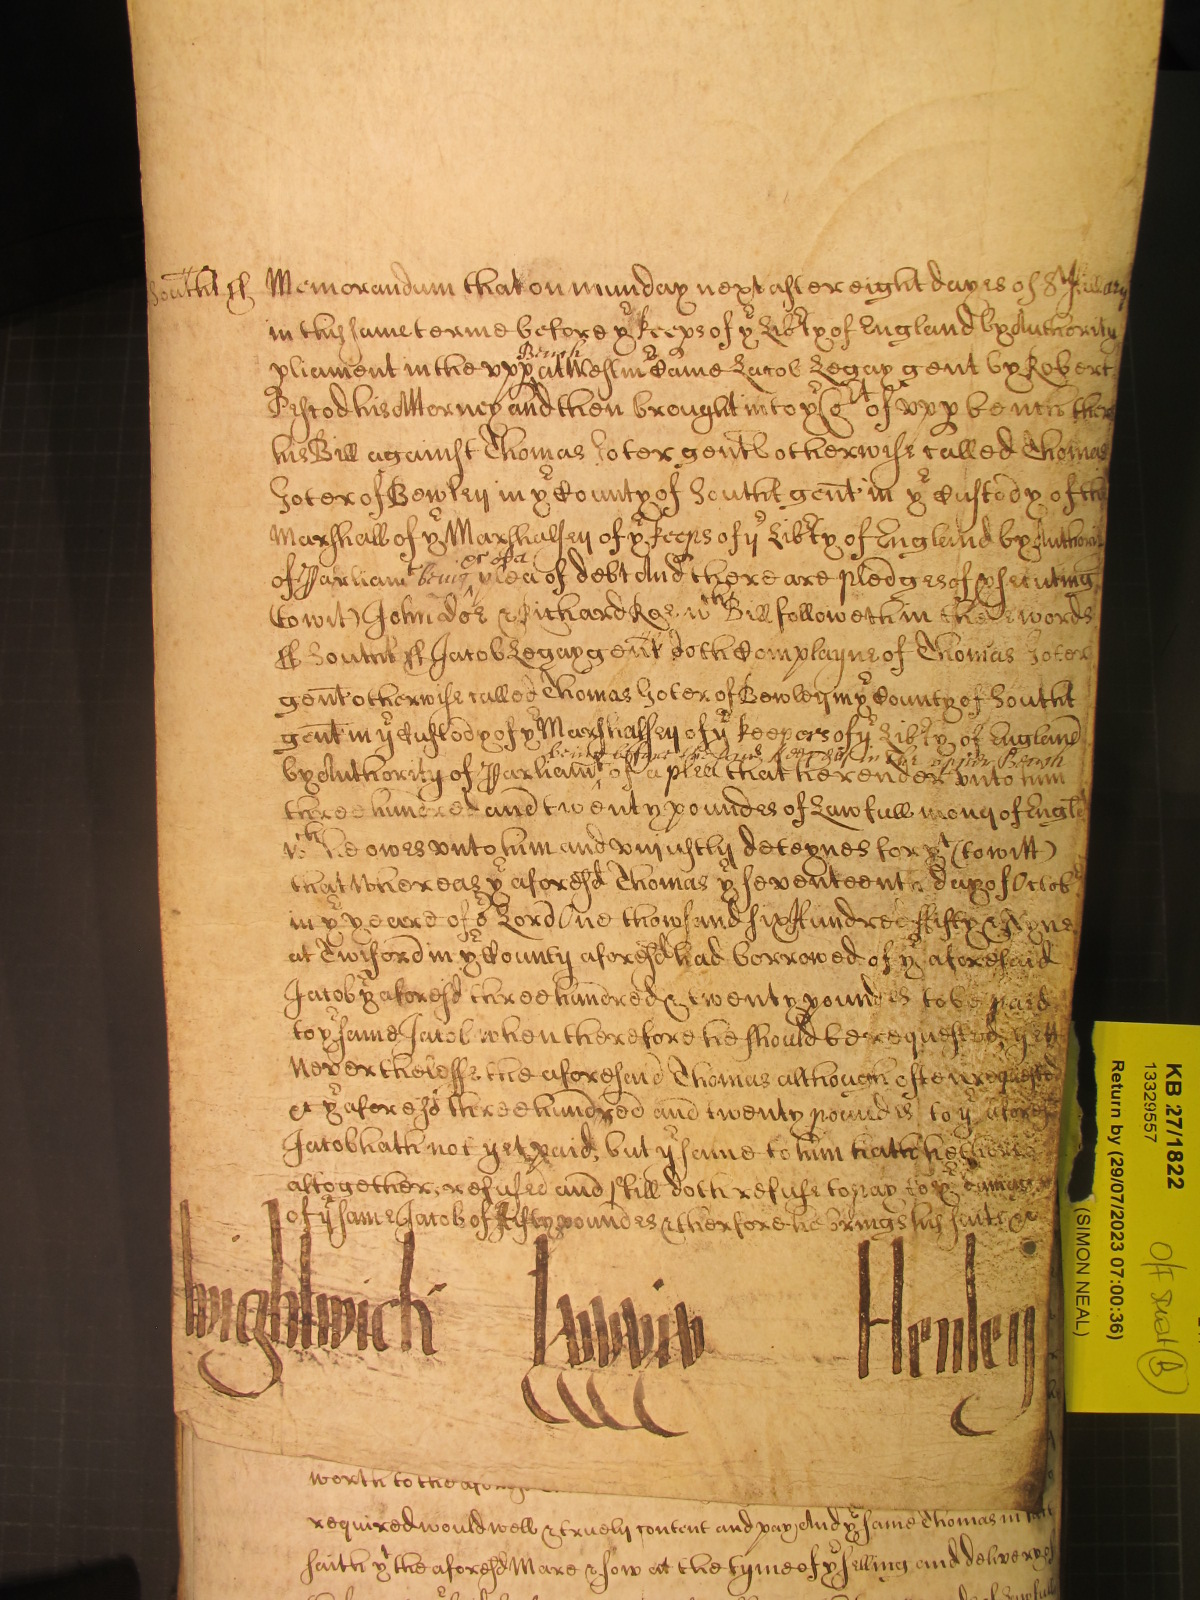 Southt ss Memorandum that on munday next after eight dayes of St Hillary
in this same terme before ye keeps of ye Libty of England by Authority
pliament in the upp Bench at Westm Came Jacob Legay gent by Robert
his Attorney and then brought into ye Cort of upp bench then
his Bill against Thomas Joter gent otherwise called Thomas
Joter of Bewley in ye County of Southt gent in ye Custody of the
Marshall of ye Marshalsey of ye keeps of ye Libty of England by Authority
of Parliamt being &c of a plea of debt And there are pledges of psecuting
(to wit) John doe & Richard Roe wch Bill followeth in these words
ss Southt ss Jacob Legay gent doth Complayne of Thomas Joter
gent otherwise called Thomas Joter of Bewley in ye County of Southt
gent in ye Custody of ye Marshalsey of ye keepers of ye Libty of England
by Authority of Parliamt being before the said keepers in the upper Bench of a plea that he render unto him
three hundred and twenty poundes of Lawfull mony of Engld
wch he owes unto him and uniustly deteynes for yt (to witt)
that Whereas ye aforesd Thomas ye seventeenth day of Octob
in ye yeare of or Lord One thowsand six Hundred Fifty & Nyne
at Twiford in ye County aforesd had borrowed of ye aforesaid
Jacob ye aforesd three hundred & twenty poundes to be paid
to ye same Jacob when therefore he should be requested yett
Neverthelesse the aforesaid Thomas although often requested
&c ye aforesd three hundred and twenty poundes to ye aforesd
Jacob hath not yet paid, but ye same to him hath hetherto
altogether refused and still doth refuse to pay to ye damage
of ye same Jacob of Fifty poundes & therfore he brings his suite &c
Wightwich Lewin Henley
worth to the
required would well & truely content and pay And ye same Thomas in
saith yt the aforesd Mare & sow at the tyme of ye selling and delivery
KB 27/1822
13329557
Return by (29/07/2023 07:00:36)
(SIMON NEAL)